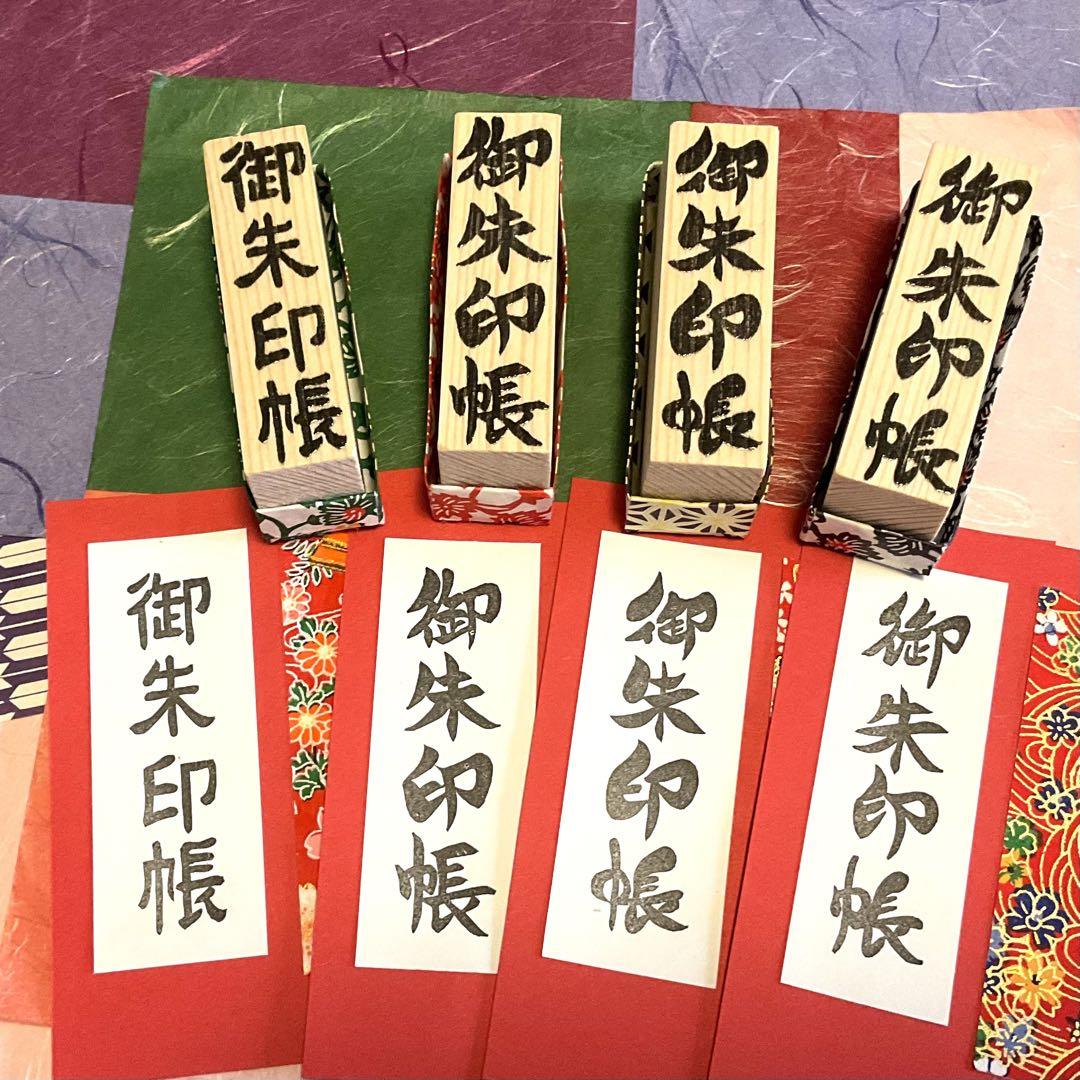 御朱印帳
御朱印帳
御朱印帳
御朱印帳
御朱印帳
御朱印帳
御朱印帳
御朱印帳